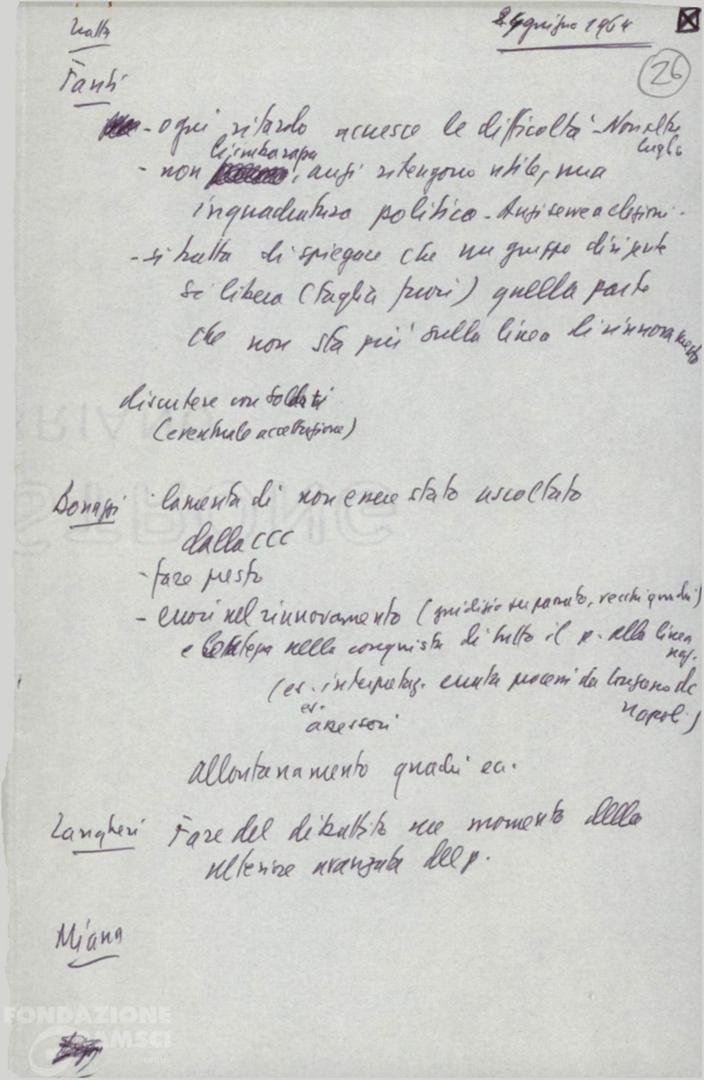 Natta
24 giugno 1964
26
Fanti
- ogni ritardo accresce le difficoltà - Non oltre
luglio
li imbarazza
- non, anzi ritengono utile, una
inquadratura politica - Anzi serve a elezioni -
- si tratta di spiegare che un gruppo dirigente
si libera (taglia fuori) quella parte
che non sta più sulla linea di rinnovamento
discutere con Soldati
(eventuale accettazione)
Bonazzi lamenta di non essere stato ascoltato
dalla CCC
- fare presto
- errori nel rinnovamento (giudizio su passato, vecchi quadri)
e nella conquista di tutto il p. alla linea
naz.
(es. interpretaz. errata processi da
Napoli)
es.
assessori
allontanamento quadri ecc.
Zangheri Fare del dibattito un momento della
ulteriore avanzata del p.
Miana
FONDAZIONE
GRAMSCI